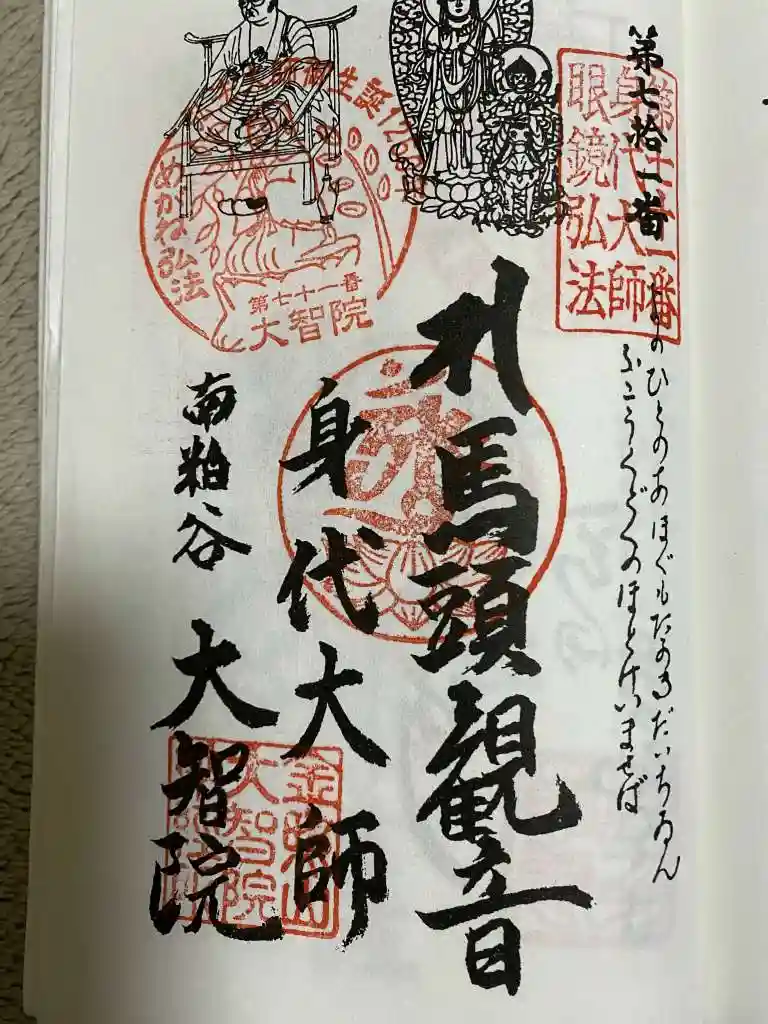 第七拾一番
第七十一番
身代大師
眼鏡弘法
ひとのあほぐもたのもだいちゐん
ふこうくどくのほとけいませば
札馬頭観音
身代大師
南粕谷
大智院
生誕12
めがね弘法
第七十一番
大智院
大智院